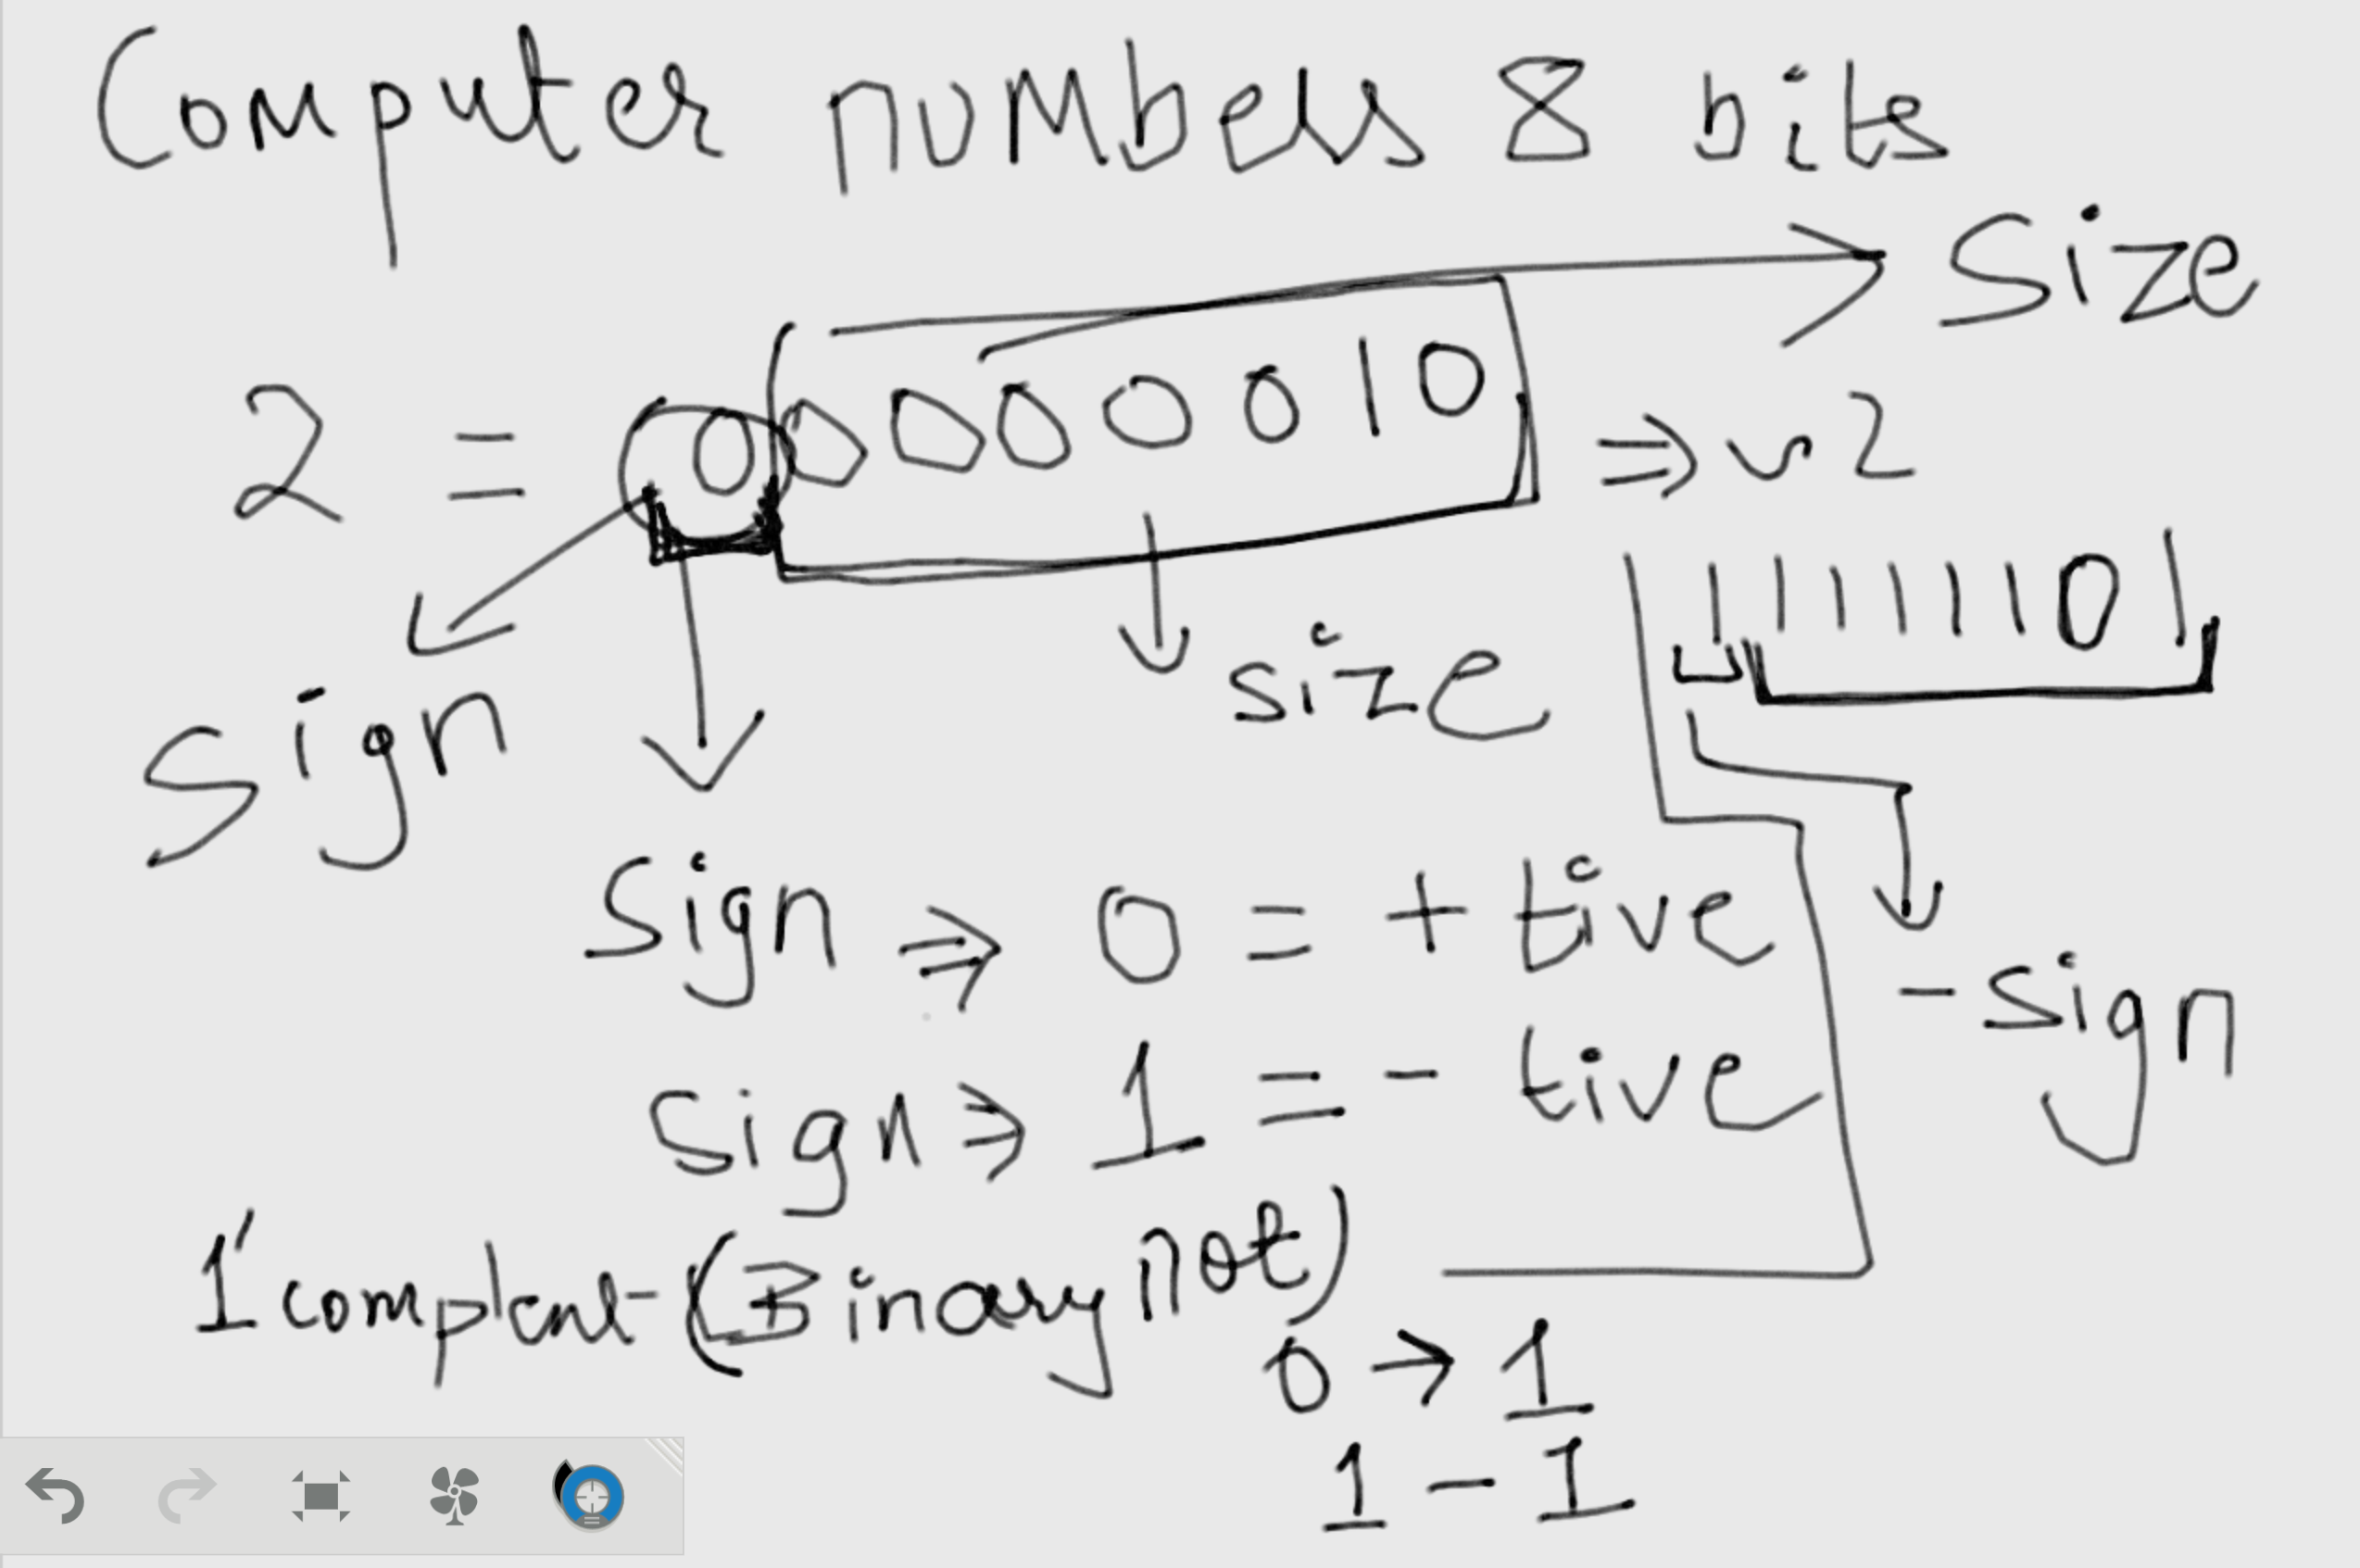 Computer numbers 8 bits
Size
2 = 00000010 => ~2
11111101
size
sign
- sign
Sign => 0 = + tive
Sign => 1 = - tive
(Binary not)
0 → 1
1 - 1